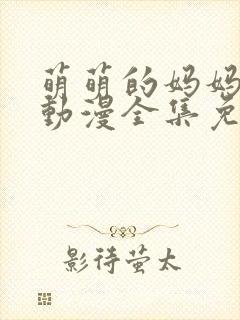 萌萌的妈妈
動漫全集免
影待萤太